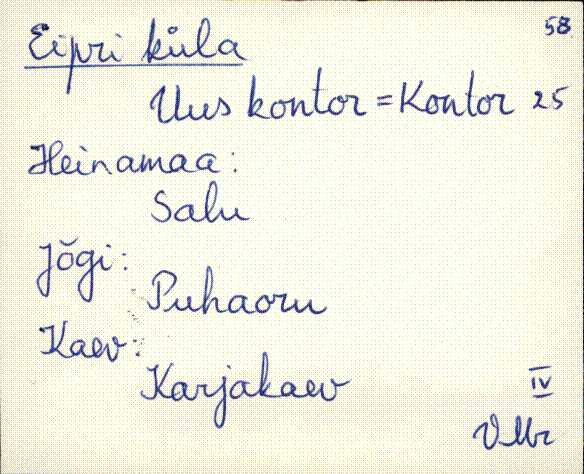 58
Eipri küla
Uus kontor = Kontor 25
Heinamaa:
Salu
Jõgi:
Puhaoru
Kaev:
Karjakaev
IV
VMr